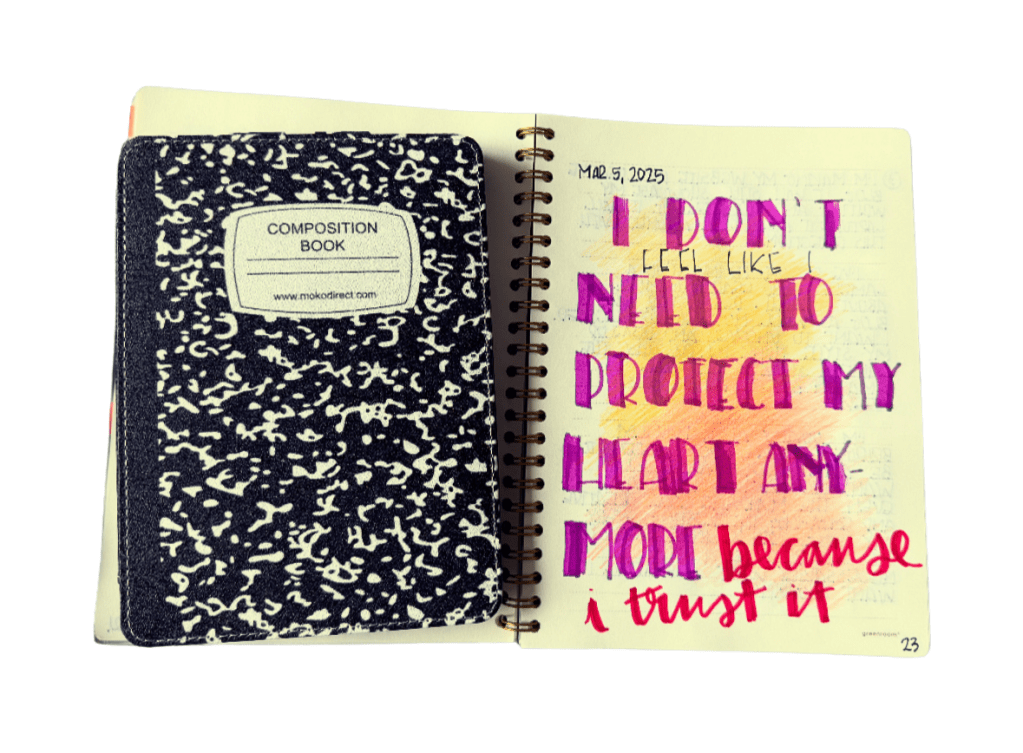 COMPOSITION
BOOK
www.mokodirect.com
MAR. 5, 2025
I DON'T
FEEL LIKE I
NEED TO
PROTECT MY
HEART ANY-
MORE because
i trust it
greenroom
23